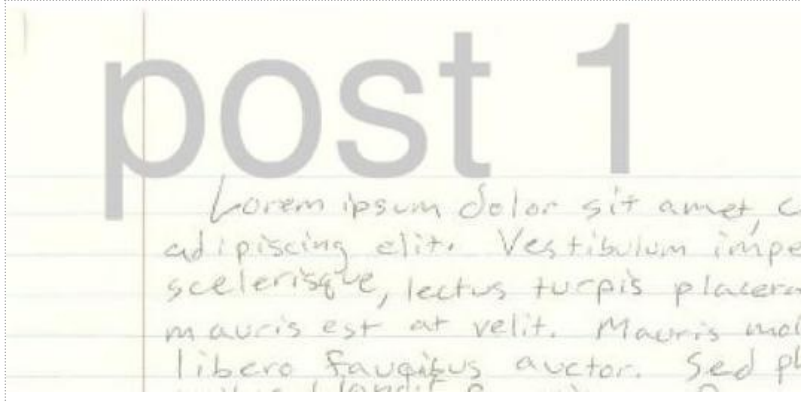 post 1
Lorem ipsum dolor sit amet, c
adipiscing elit. Vestibulum impe
scelerisque, lectus turpis placera
mauris est at velit. Mauris mol
libero faucibus auctor. Sed pl